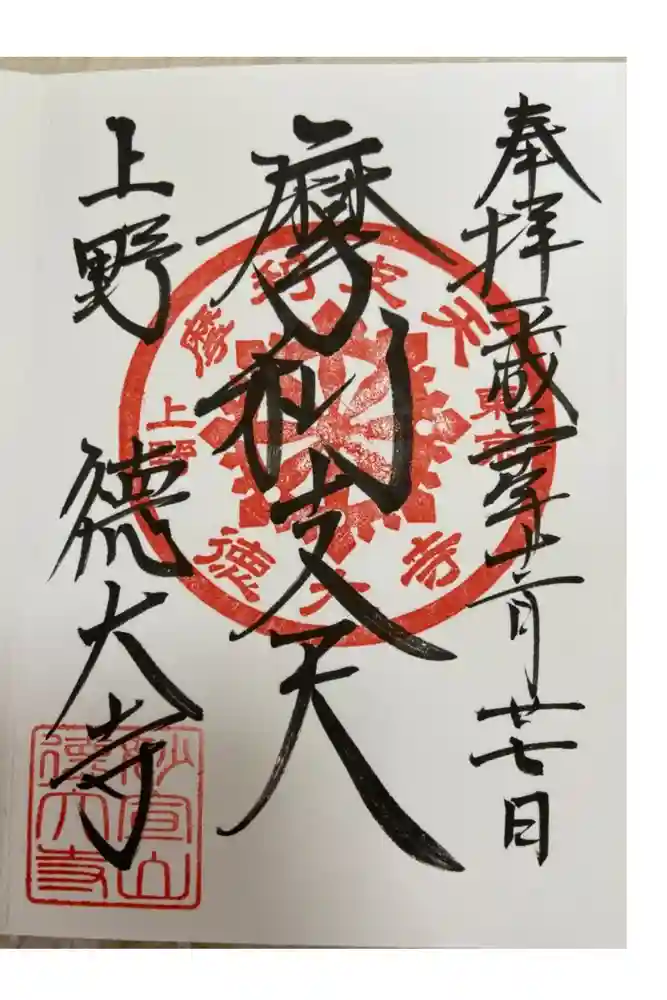 奉拝 平成三十年十二月廿七日
摩利支天
上野 徳大寺
摩利支天
東京
上野
徳大寺
妙宣山
徳大寺